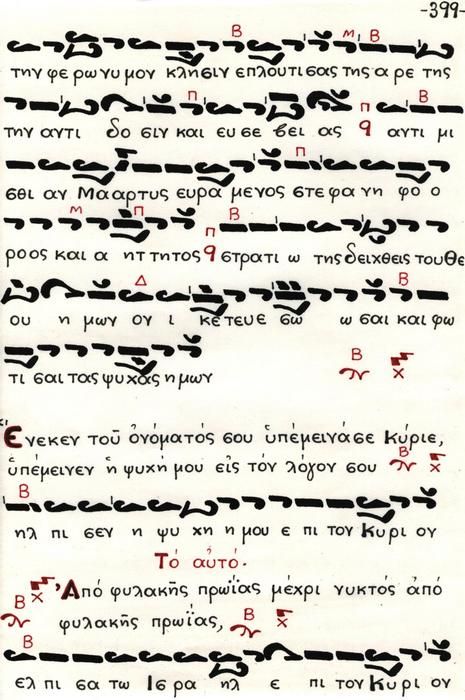 -399-
την φε ρω νυ μον κλη σιν ε πλου τι σας της α ρε της
την αντι δο σιν και ευ σε βει ας αντι μι
σθι αν Μα αρτυς ευρα μενος στε φα νη φο ο
ρο ος και α ητ τη τος στρατι ω της δειχθεις του Θε
ου η μων ον ι κε τευ ε σω ω σαι και φω
τι σαι τας ψυ χας η μων
Ενεκεν τοῦ ὀνόματός σου ὑπέμεινά σε Κύριε,
ὑπέμεινεν ἡ ψυχή μου εἰς τόν λόγον σου
ηλ πι σεν η ψυ χη η μου ε πι τον Κυρι ον
Τό αὐτό.
Ἀπό φυλακῆς πρωΐας μέχρι νυκτός ἀπό
φυλακῆς πρωΐας,
ελ πι σα τω Ισ ρα ηλ ε πι τον Κυρι ον